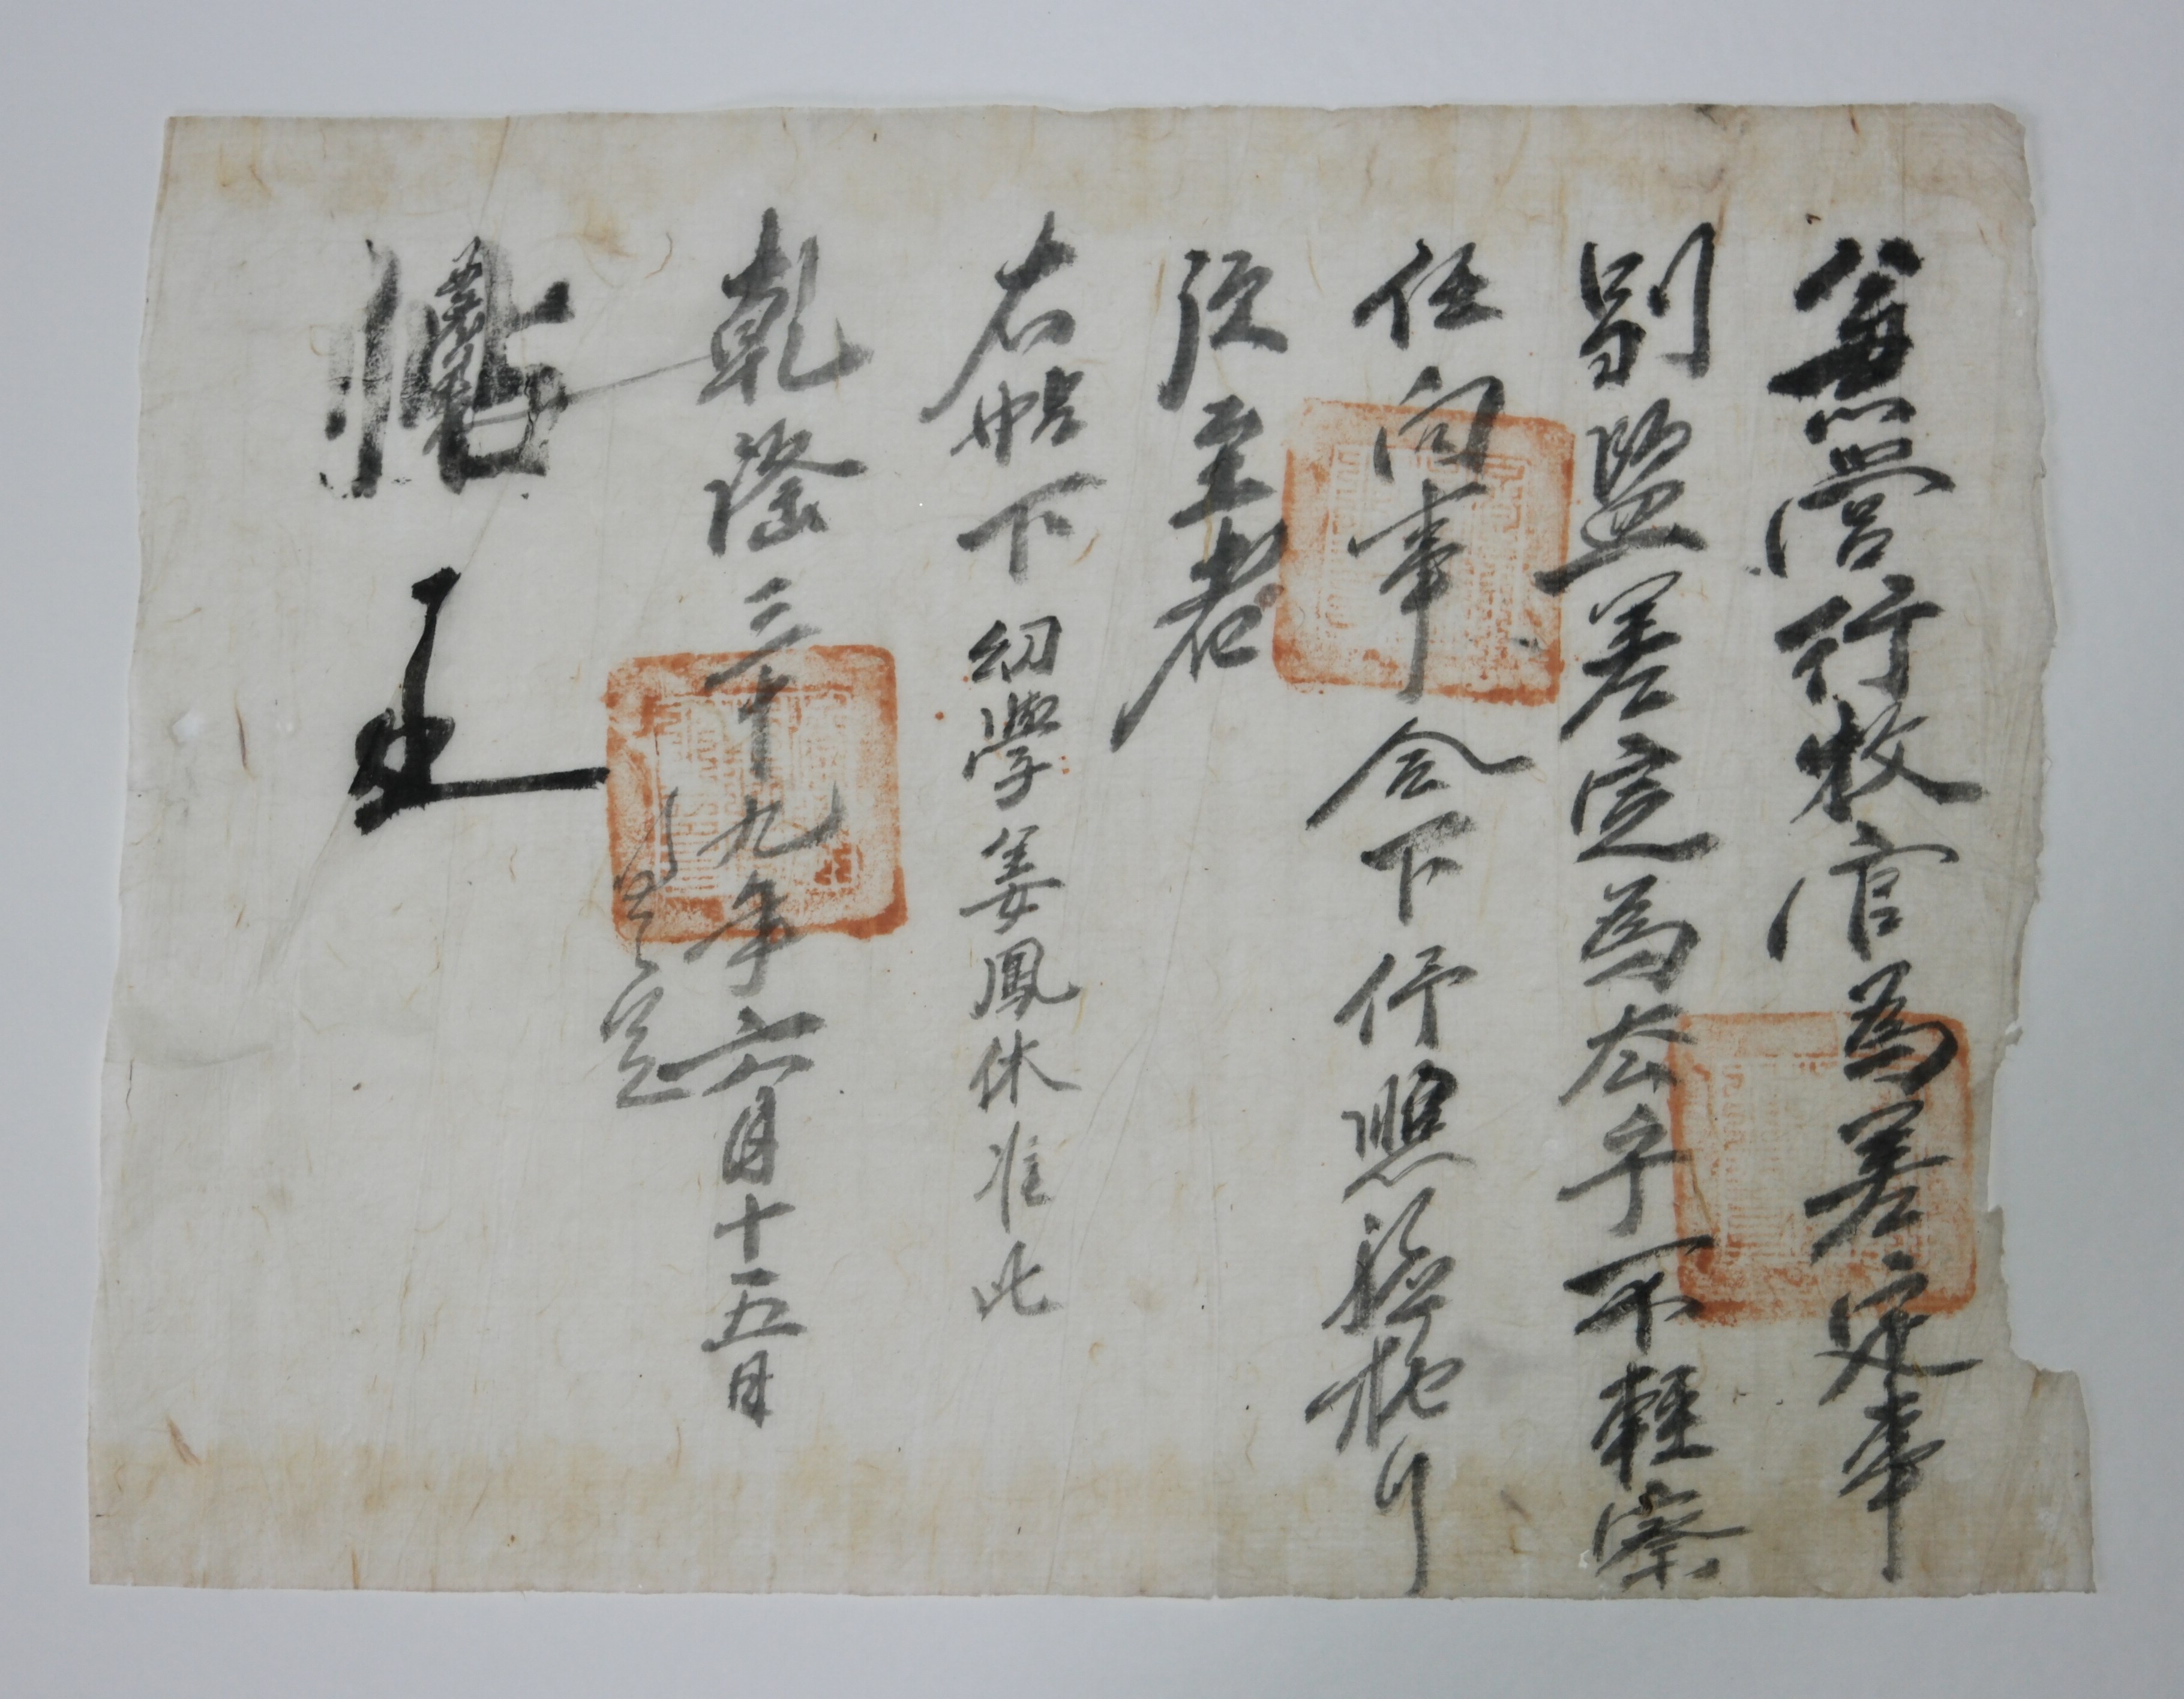 兼營行牧官爲差定事
別監差定爲去乎不輕察
任向事合下仰照驗施行
須至者
右帖下幼學姜鳳休准此
乾隆三十九年六月十五日
帖